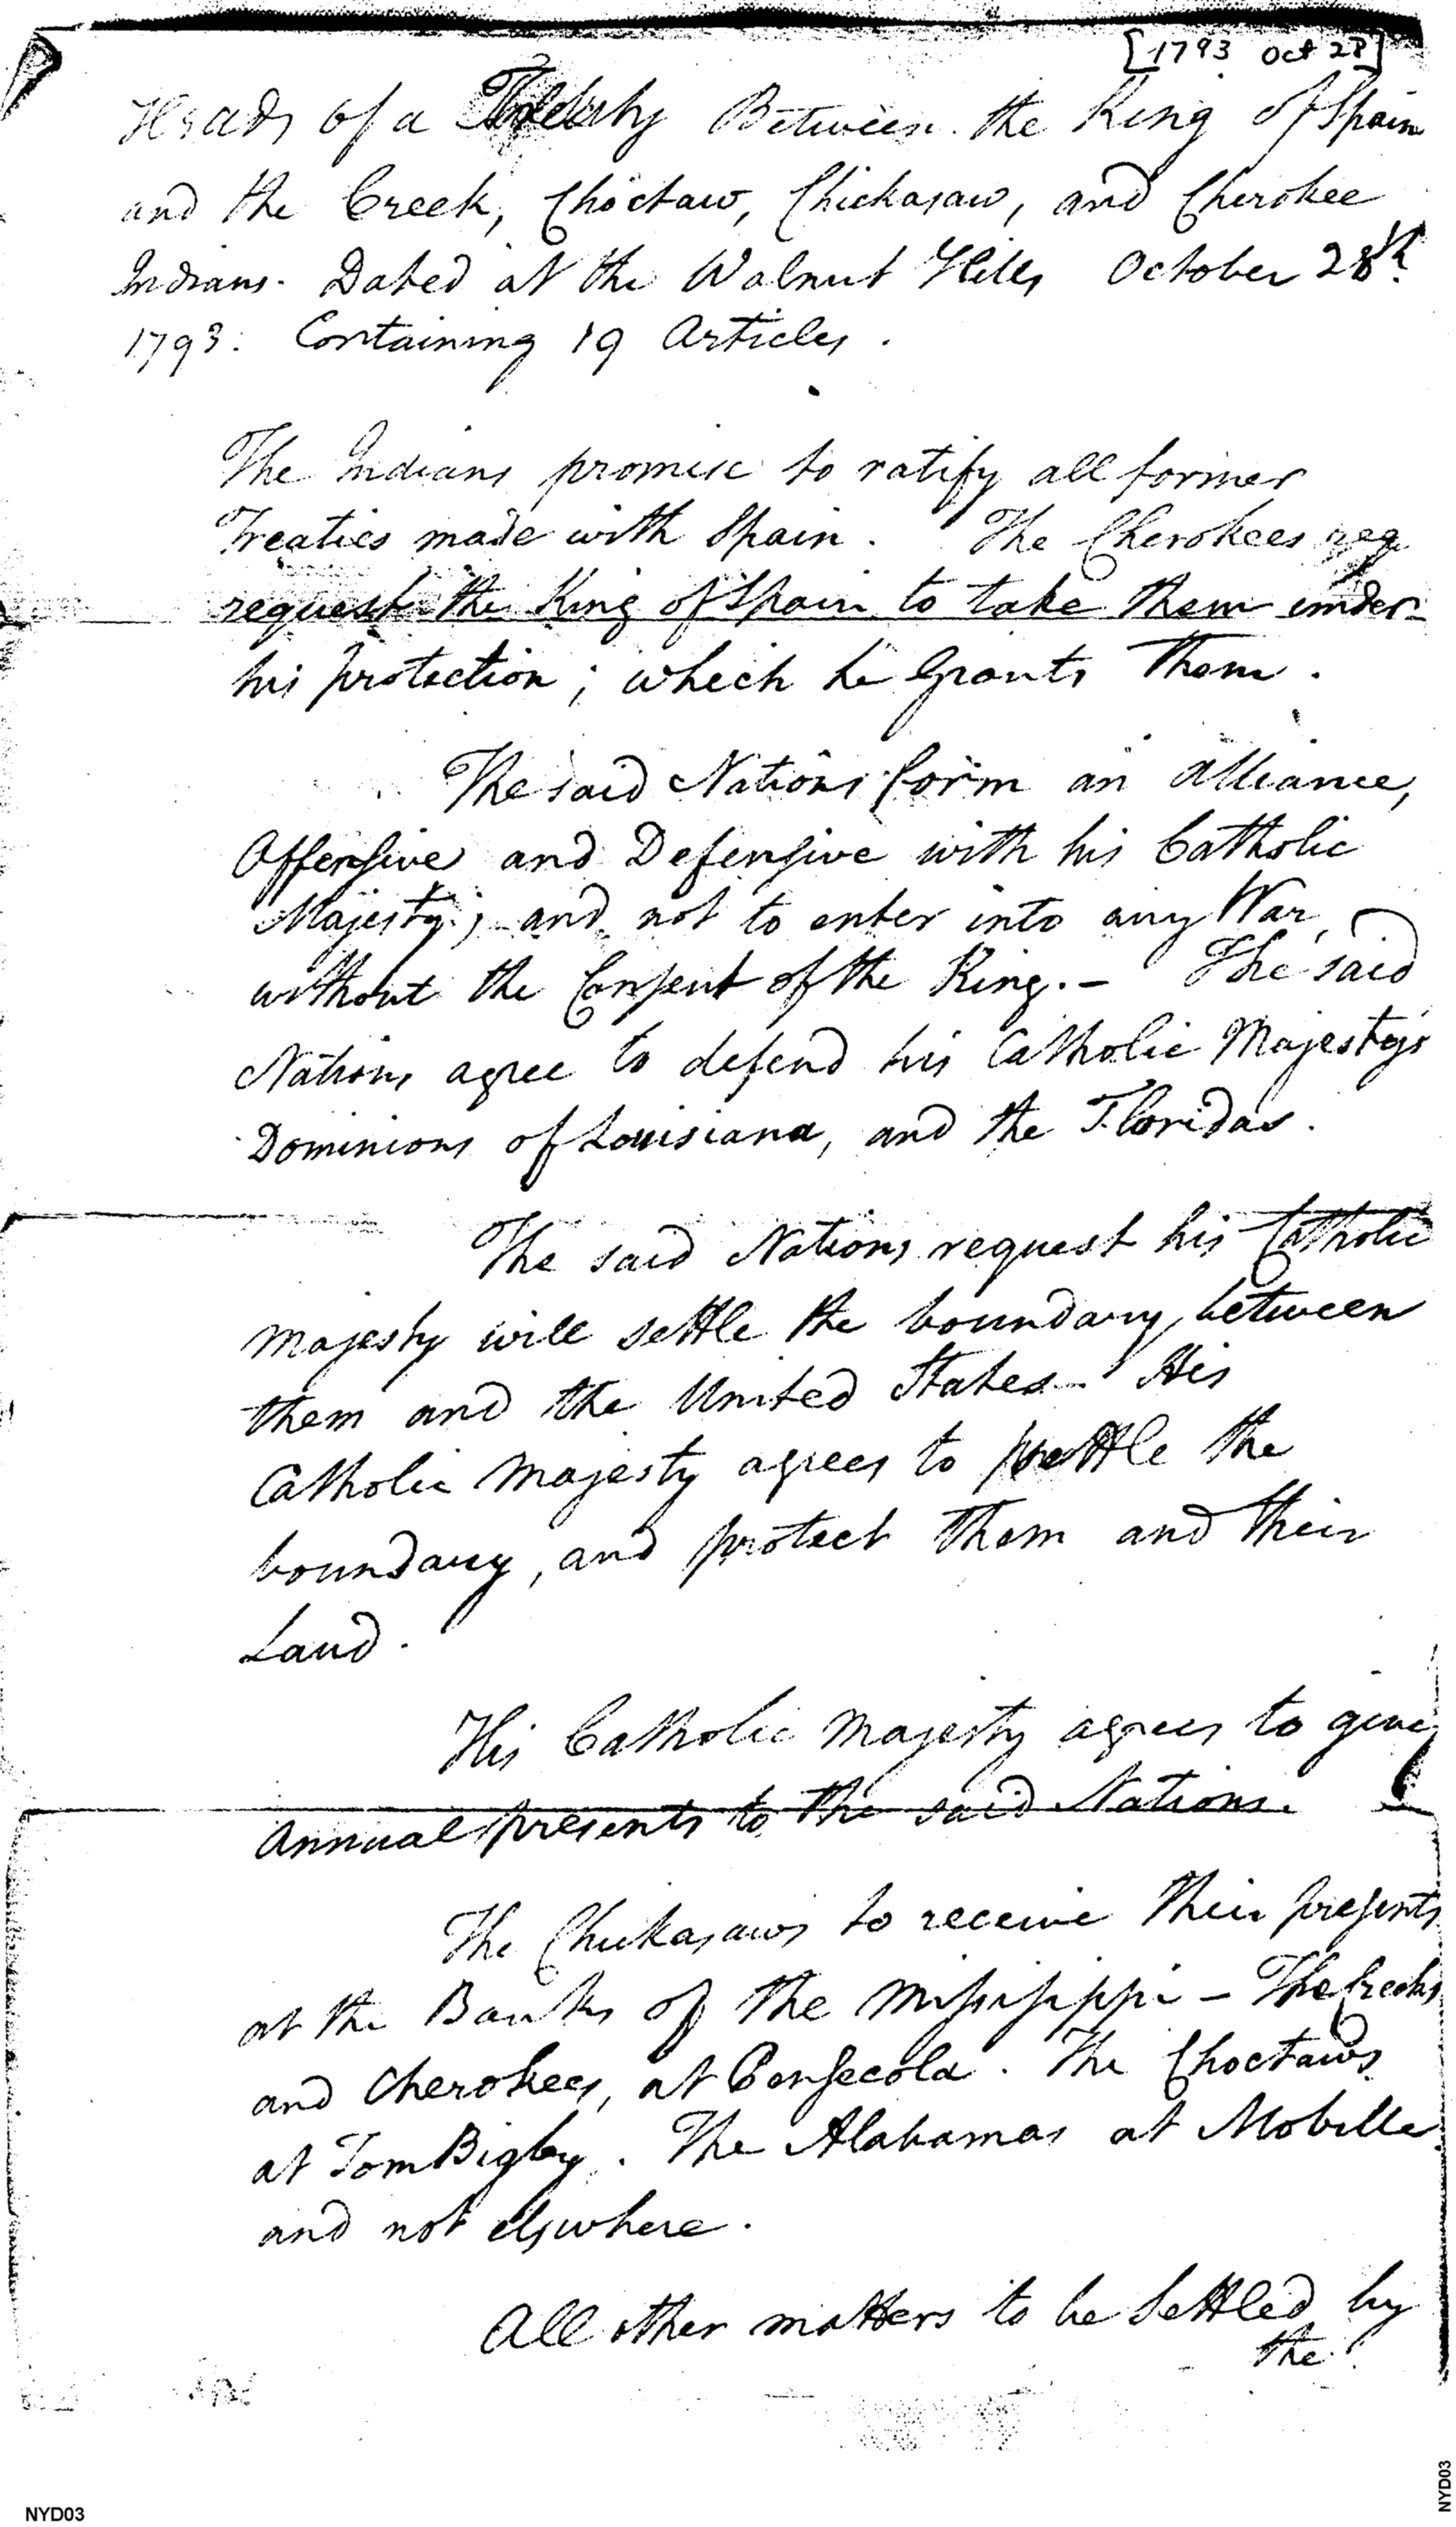 [1793 Oct 28]
Heads of a Treaty Between the King of Spain
and the Creek, Choctaw, Chickasaw, and Cherokee
Indians. Dated at the Walnut Hills October 28th.
1793. Containing 19 Articles.
The Indians promise to ratify all former
Treaties made with Spain. The Cherokees req
request the King of Spain to take them under
his protection; which he Grants them.
The said Nations form an alliance,
Offensive and Defensive with his Catholic
Majesty; and not to enter into any War,
without the Consent of the King.- The said
Nations agree to defend his Catholic Majesty's
Dominions of Louisiana, and the Floridas.
The said Nations request his Catholic
Majesty will settle the boundary between
them and the United States- His
Catholic Majesty agrees to settle the
boundary, and protect them and their
Land.
His Catholic Majesty agrees to give
Annual presents to the said Nations.
The Chickasaws to receive their presents
at the Banks of the Missisippi - The Creeks
and Cherokees, at Pensecola. The Choctaws
at Tom Bigby. The Alabamas at Mobille
and not elswhere.
All other matters to be Settled by
the
NYD03
NYD03